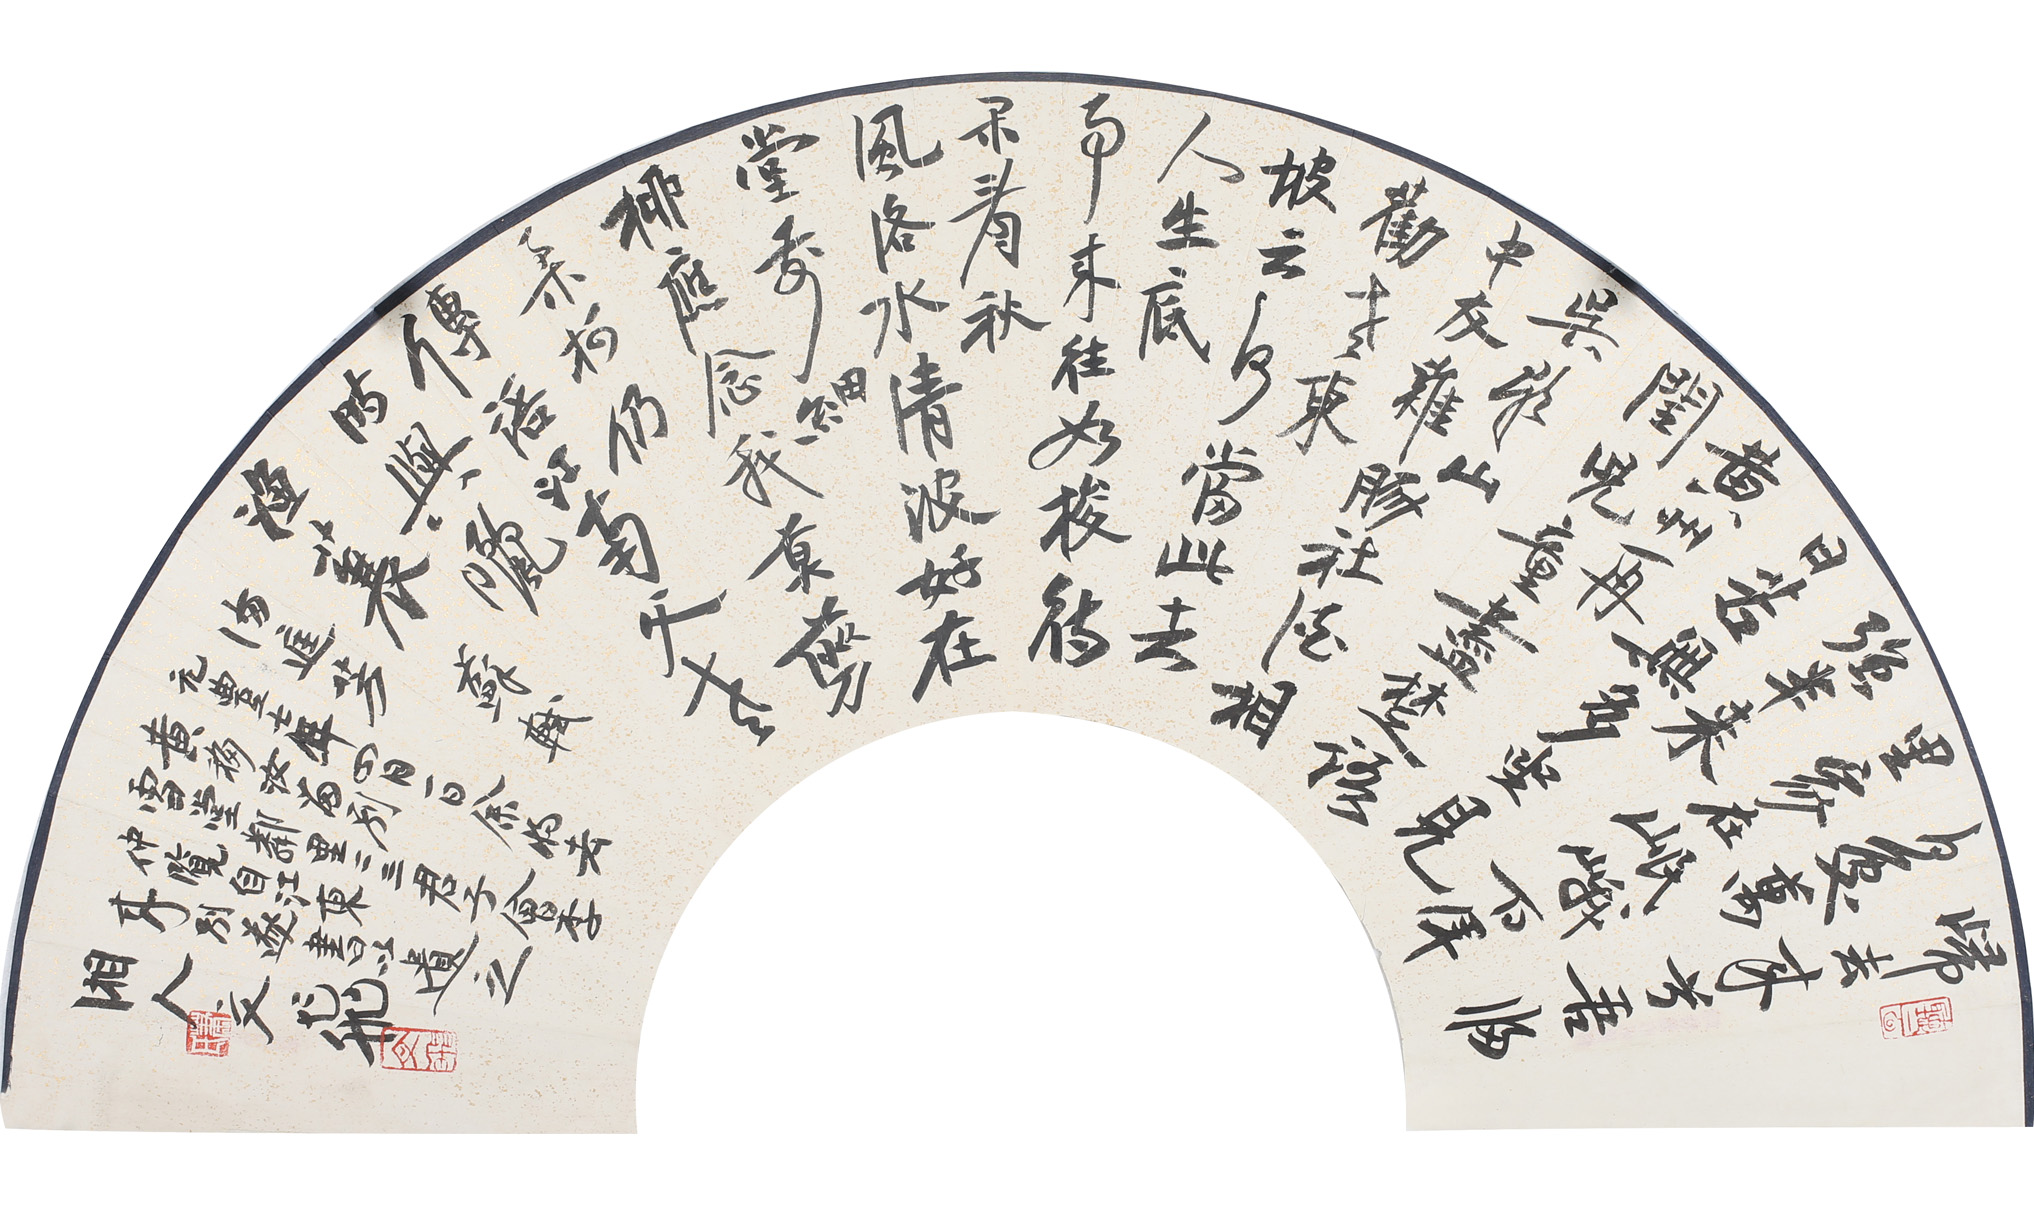 歸去來兮吾歸
何處萬
里家在岷峨百年
強半來
日苦無多坐見
黃州再
閏兒童盡楚語
吳歌山
中友雞豚社酒相
勸老東
坡云何當此去
人生底
事來往如梭待
閑看秋
風洛水清波好在
堂前細
柳應念我莫剪
柔柯仍
傳語江南父老
時與曬
漁蓑 蘇軾
滿庭芳
元豐七年四月一日余將去
黃移汝留別
雪堂鄰里二三君子會李
仲覽自江東
來別遂書以遺之
湘人文